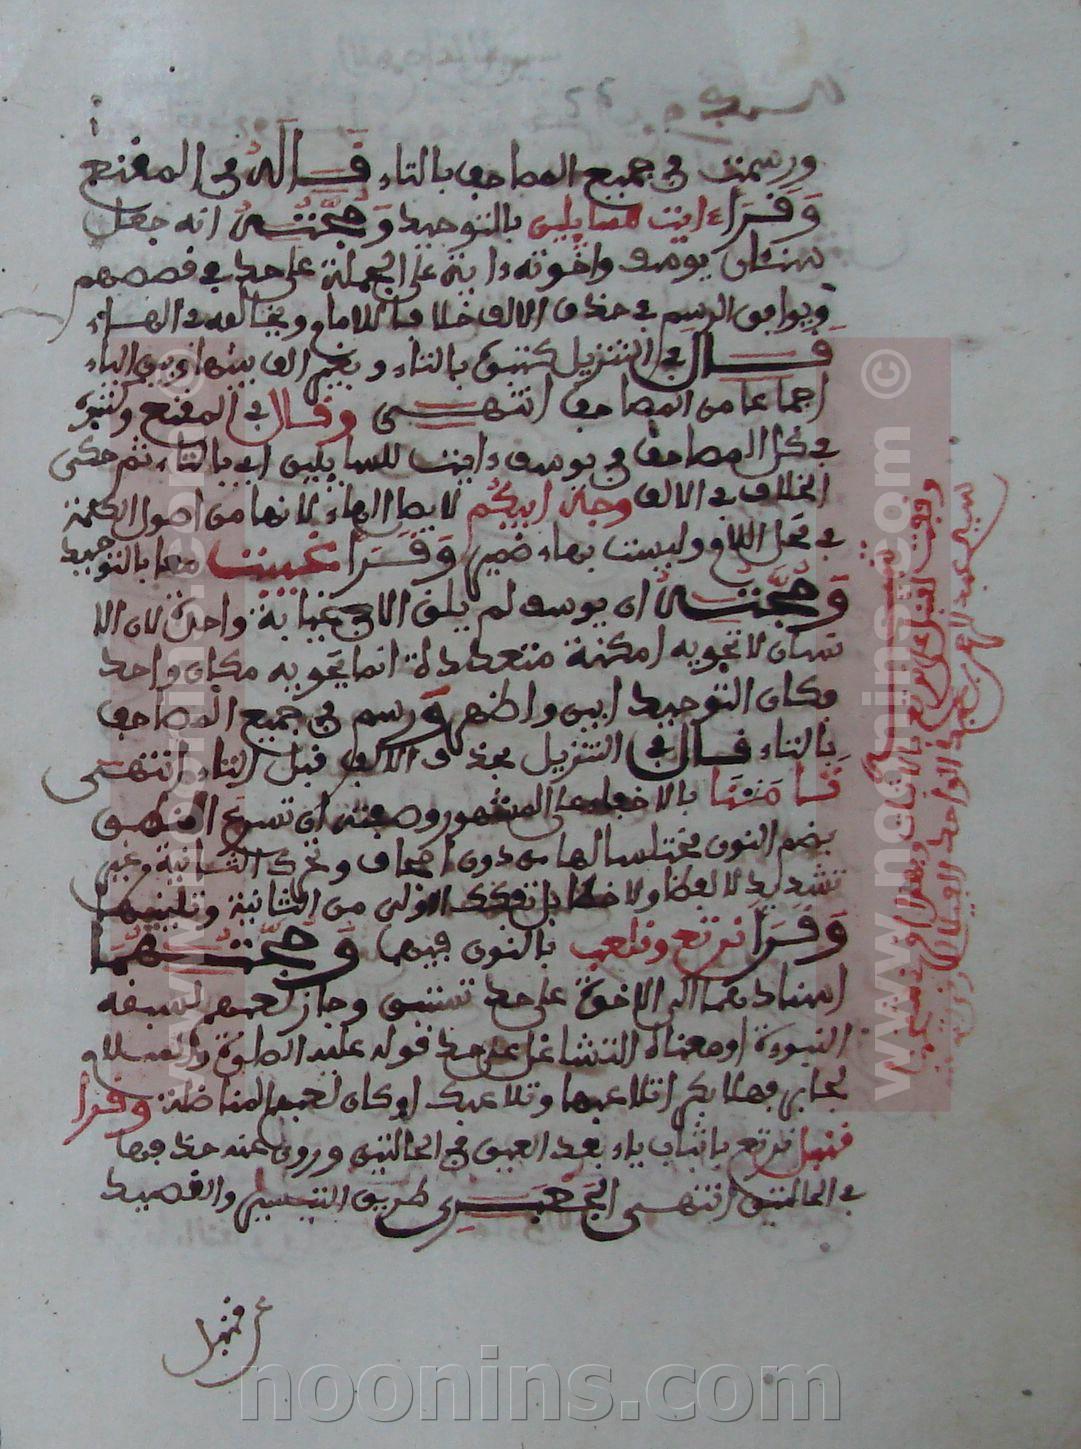 ورسمت في جميع المصاحف بالتاء قاله في المقنع
وقرأ ءايت للسايلين بالتوحيد وحجته انه جعل
شأن يوسف واخوته داية على الجملة على حد في قصصهم
ويوافق الرسم في حذف الالف خلافا للامام ويخالفه في الهاء
قال في التنزيل كتبوه بالتاء وبغير الف بينها وبين الياء
اجماعا من المصاحف انتهى وقال في المقنع وكتبوا
في كل المصاحف في يوسف دايت للسايلين اي بالتاء ثم حكى
الخلاف في الالف وجه ابيكم لا يصل الهاء لانها من اصول الكلمة
في محل اللام وليست بهاء ضمير وقرأ غيبت معا بالتوحيد
وحجته ان يوسف لم يلق الا في غيابة واحدة لان الا
نسان لا تحويه امكنة متعددة انما يحويه مكان واحد
فكان التوحيد ابين واظهر ورسم في جميع المصاحف
بالتاء قال في التنزيل بحذف الالف قبل التاء انتهى
تامنا بالاخفاء على المشهور وصفته ان تسرع النطق
بضم النون مختلسا لها من دون اجحاف وتحرك الثانية وغير
تشديد لا لفظا ولا خطا بل تفكك الاولى من الثانية وتليينها
وقرأ نرتع ونلعب بالنون فيهما وحجتهما
اسنادهما الى الاخوة على حد نستبق وجاز لعبهم لسبقه
النبوءة او معناه التشاغل على حد قوله عليه الصلوة والسلام
لجابر فهلا بكر اتلاعبها وتلاعبك او كان لعبهم المناضلة وقرا
قنبل نرتع باثبات ياء بعد العين في الحالتين وروى عنه حذفها
في الحالتين انتهى الجعبري طريق التيسير والقصيد
قنبل
www.noonins.com ©
www.noonins.com ©
noonins.com